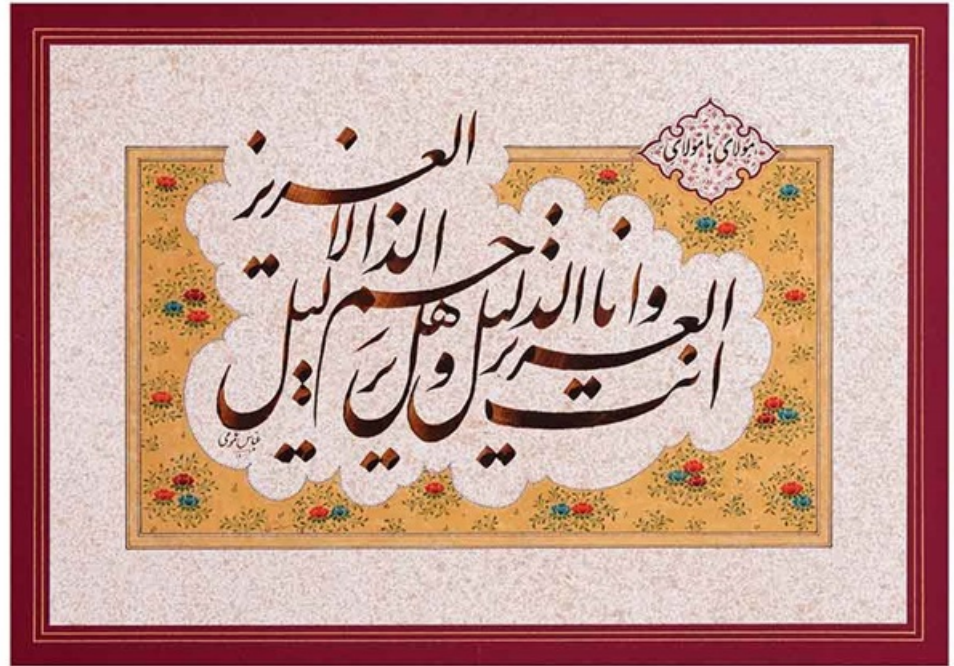 مولای یا مولای
انت العزیز وانا الذلیل وهل یرَحم الذلیل الا العزیز
عباس